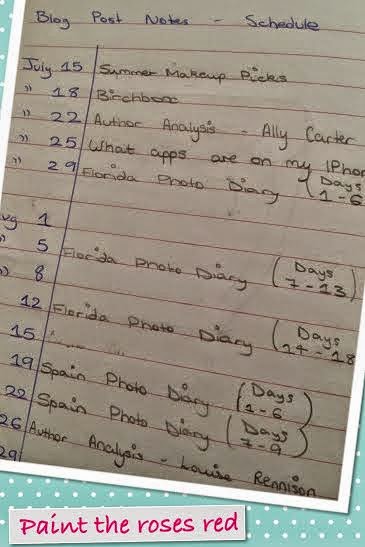 Blog Post Notes - Schedule
July 15 Summer Makeup Picks
" 18 Birchbox
" 22 Author Analysis - Ally Carter
" 25 What apps are on my iPhon
" 29 Florida Photo Diary (Days 1-6
ug 1
" 5 Florida Photo Diary (Days 7-13)
" 8
12 Florida Photo Diary (Days 14-18
15
19 Spain Photo Diary (Days 1-6)
22 Spain Photo Diary (Days 7-9)
26 Author Analysis - Louise Rennison
29
Paint the roses red